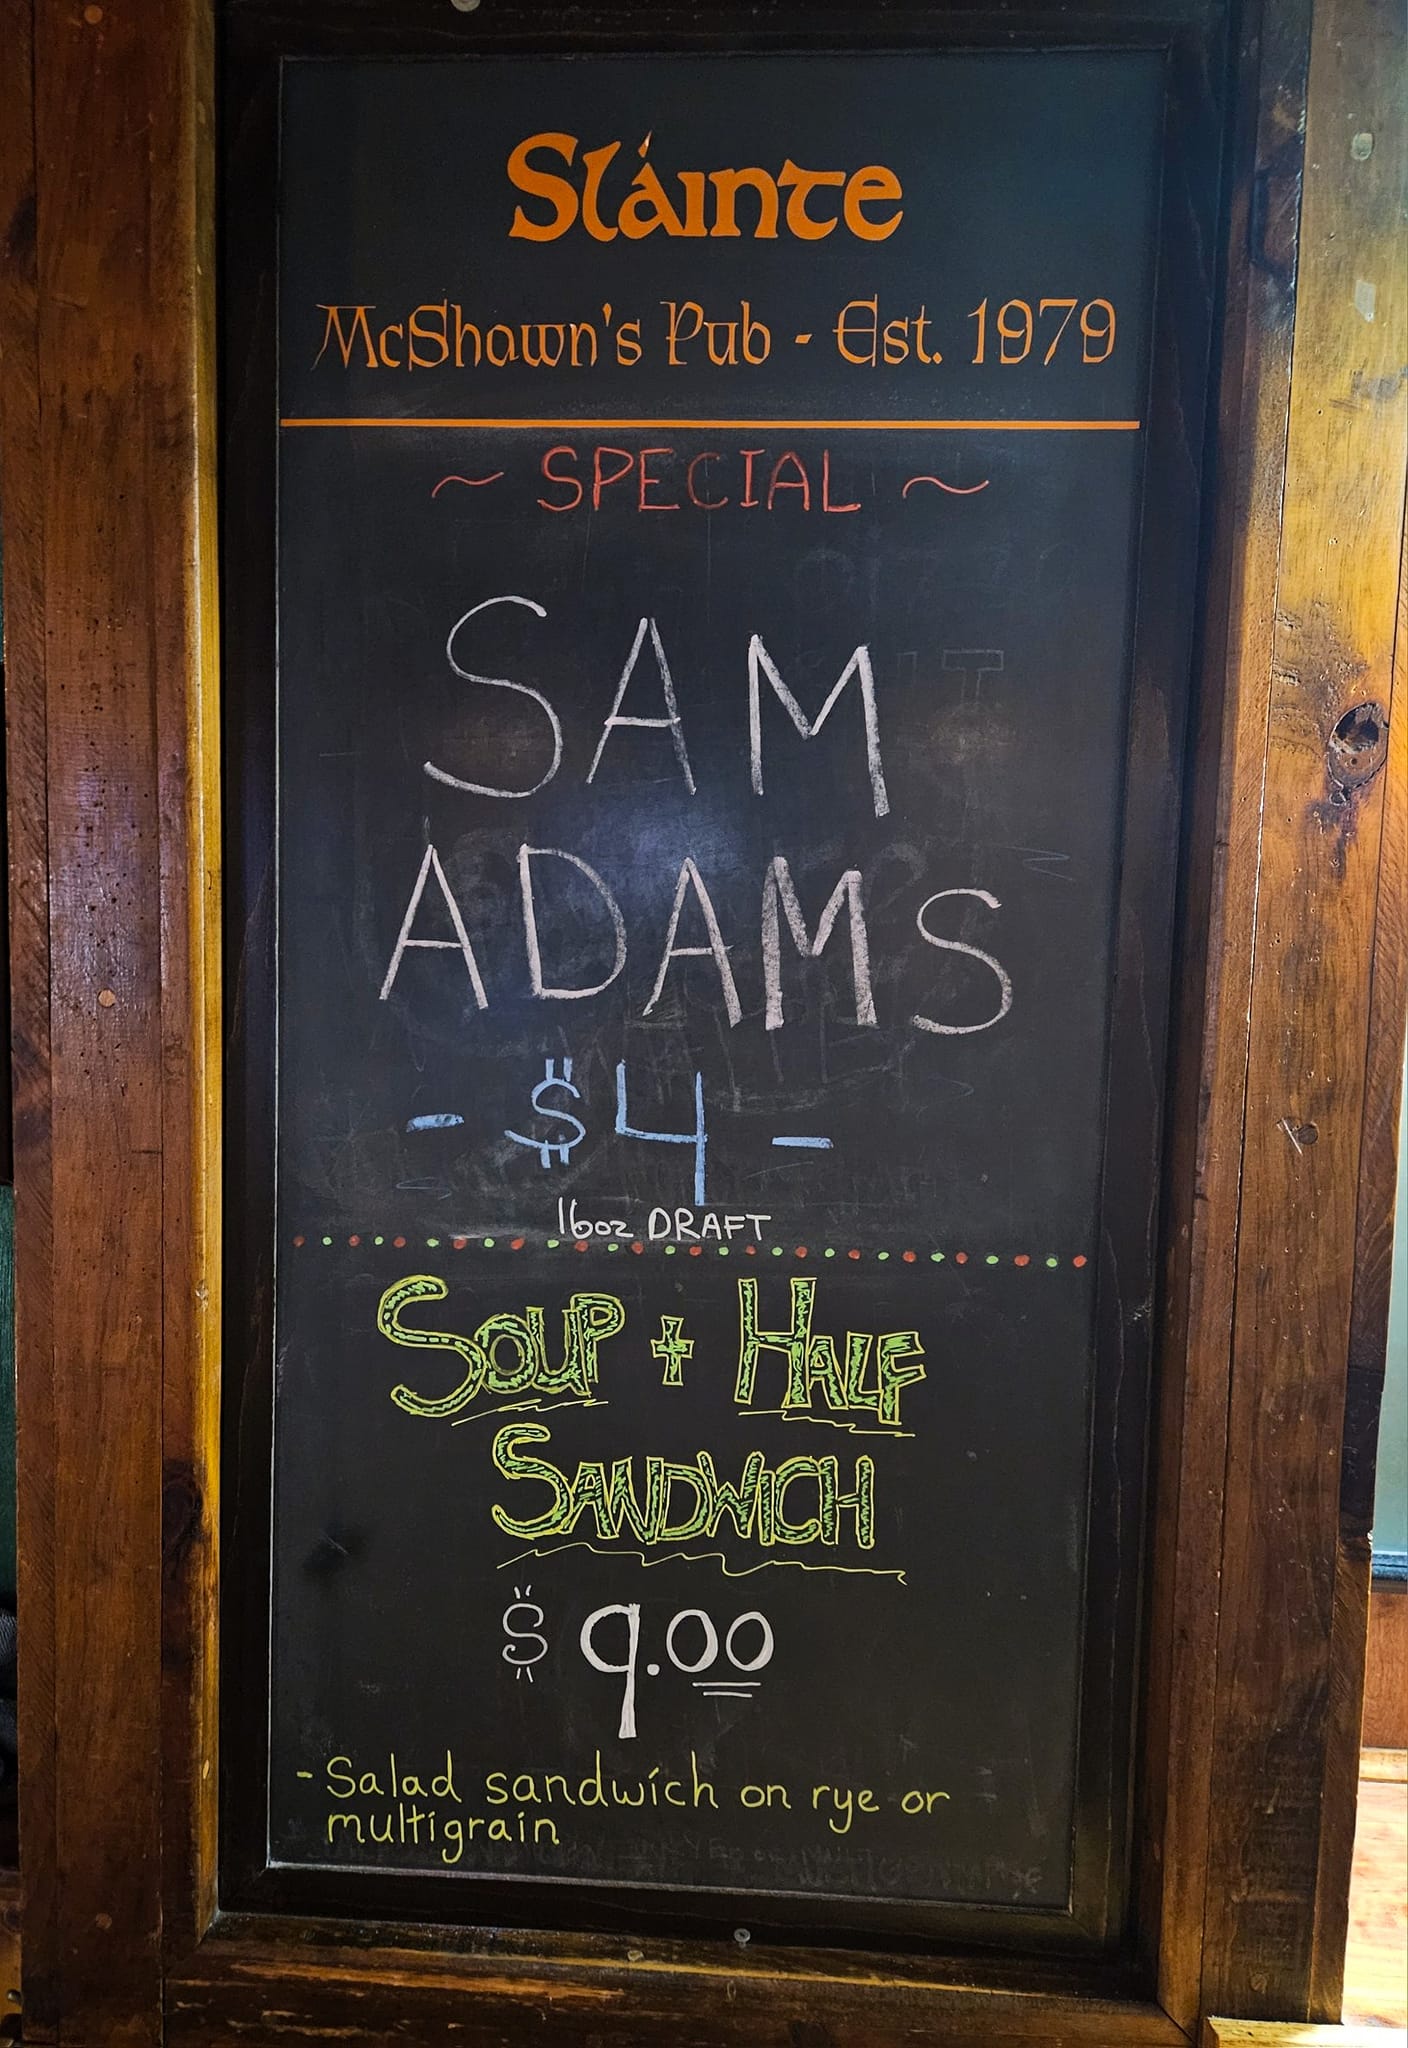 Sláinte
McShawn's Pub - Est. 1979
~ SPECIAL ~
SAM
ADAMS
- $4 -
16oz DRAFT
SOUP + HALF
SANDWICH
$9.00
- Salad sandwich on rye or
multigrain